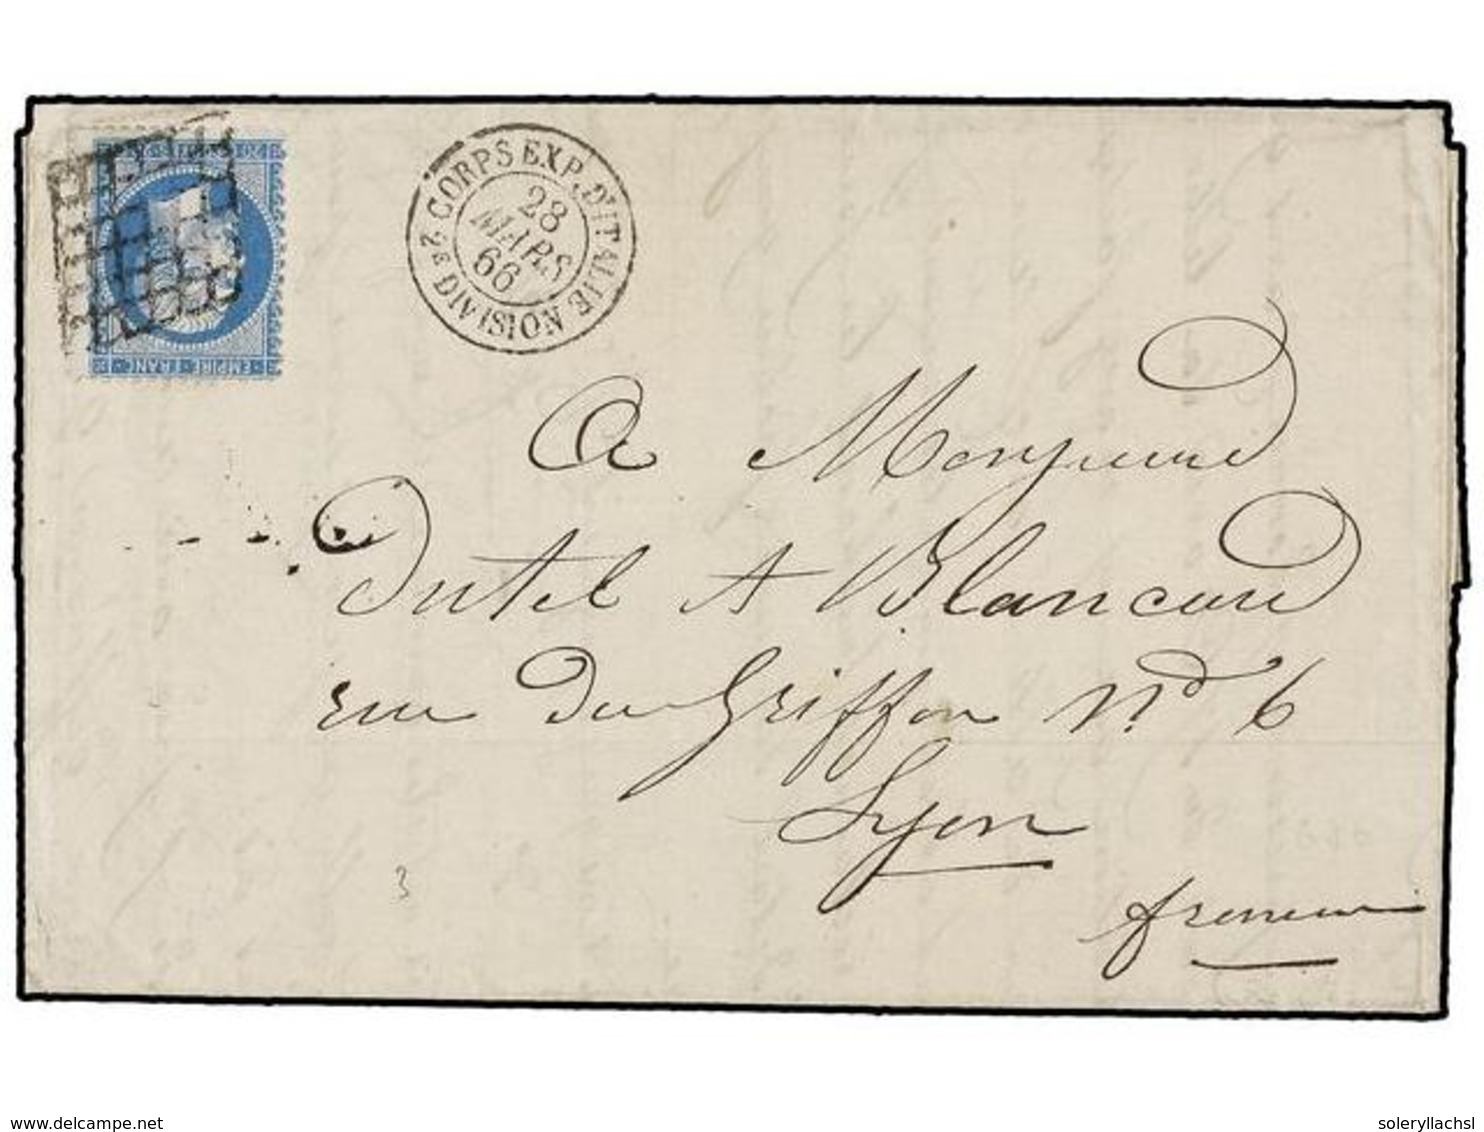 CORPS EXP. D'ITALIE
2E DIVISION
28
MARS
66
20
EMPIRE · FRANC ·
A Messieurs
Dutel et Blancard
rue du Griffon No 6
Lyon
3
www.delcampe.net
soleryllachsl